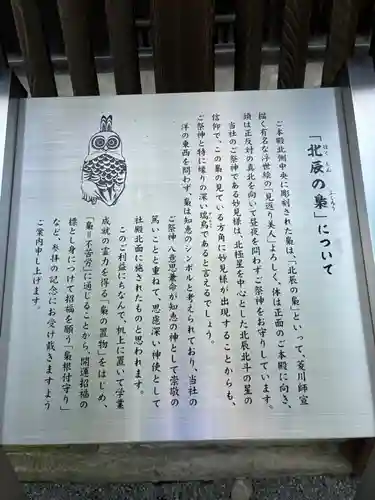 「北辰の梟」について
ほくしん
ふくろう
ご本殿北側中央に彫刻された梟は、「北辰の梟」といって、菱川師宣
描く有名な浮世絵の「見返り美人」よろしく、体は正面のご本殿に向き、
頭は正反対の真北を向いて昼夜を問わずご祭神をお守りしています。
当社のご祭神である妙見様は、北極星を中心とした北辰北斗の星の
信仰で、この梟の見ている方角に妙見様が出現することからも、
ご祭神と特に縁りの深い瑞鳥であると言えるでしょう。
洋の東西を問わず、梟は知恵のシンボルと考えられており、当社の
ご祭神八意思兼命が知恵の神として崇敬の
篤いことと重ねて、思慮深い神使として
社殿北面に施されたものと思われます。
このご利益にちなんで、机上に置いて学業
成就の霊力を得る「梟の置物」をはじめ、
「梟=不苦労」に通じることから、開運招福の
標として身につけて招福を願う「梟根付守り」
など、参拝の記念にお受け戴きますよう
ご案内申し上げます。